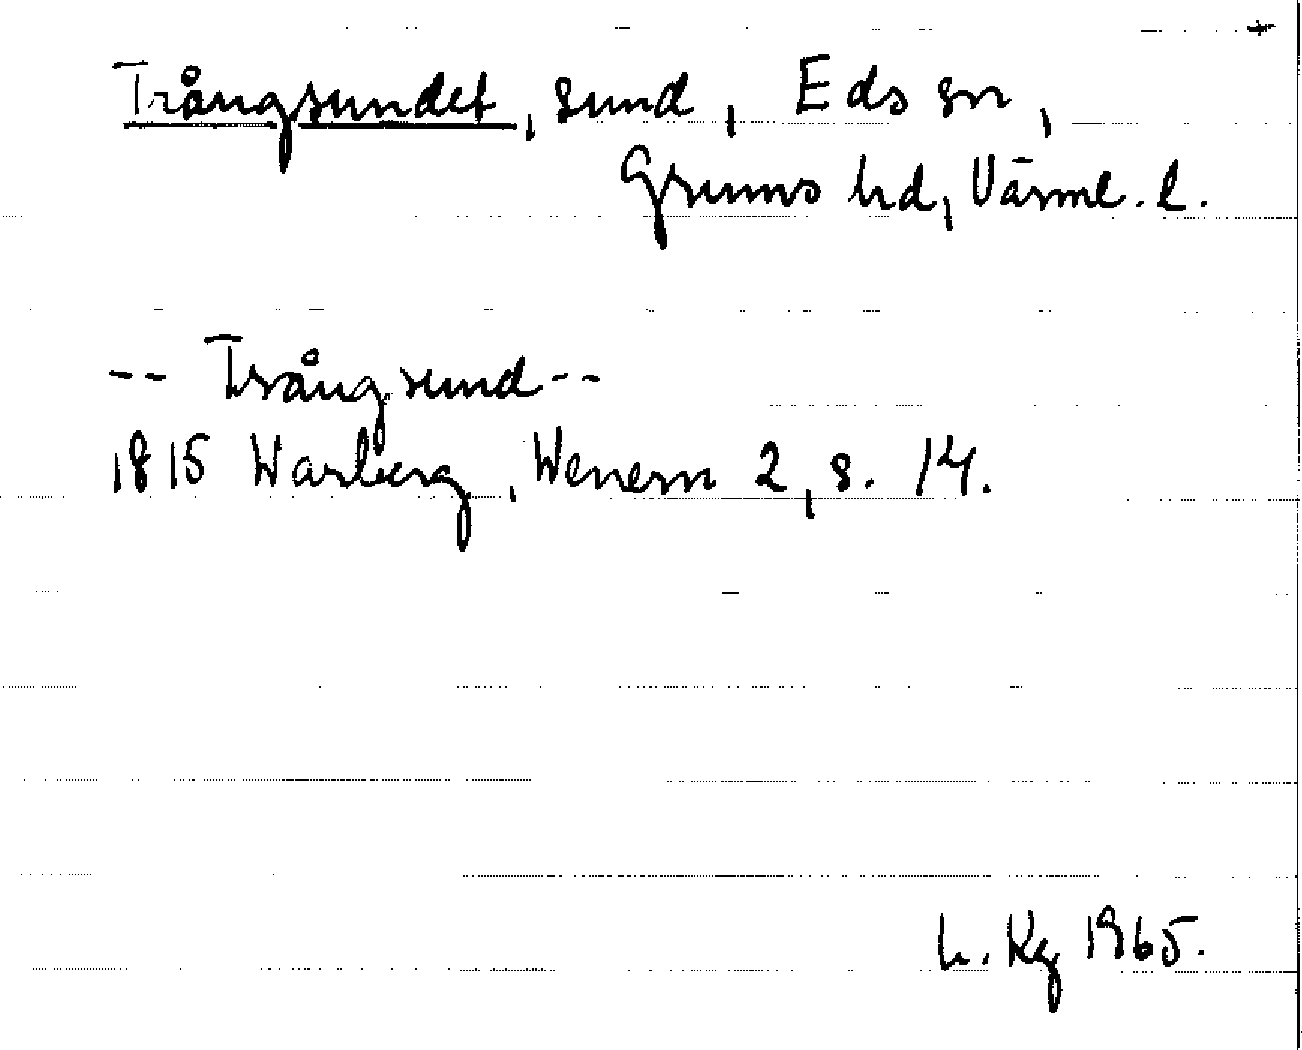 Trångsundet, sund, Eds sn,
Grums hd, Värml. l.
-- Trångsund --
1815 Warberg, Wenern 2, s. 14.
L. Kg 1965.